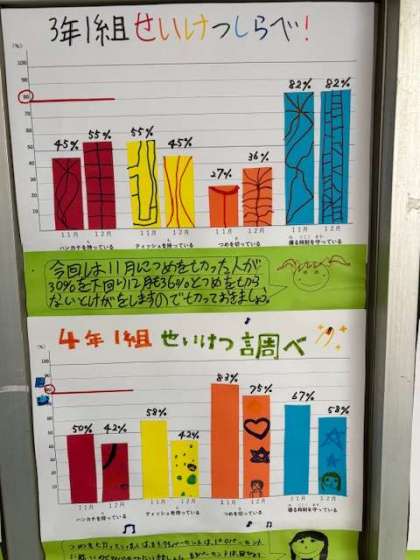 3年1組せいけつしらべ!
(%)
100
90
80
70
60
50
40
30
20
10
45% 55% 55% 45% 27% 36% 82% 82%
11月 12月 11月 12月 11月 12月 11月 12月
ハンカチを持っている ティッシュを持っている つめを切っている 寝る時刻を守っている
今回は11月につめを切った人が
30%を下回り12月も36%とつめを切ら
ないとけがをしますので切っておきましょう。
4年1組 せいけつ調べ
(%)
100
90
80
70
60
50
40
30
20
10
50% 42% 58% 42% 83% 75% 67% 58%
11月 12月 11月 12月 11月 12月 11月 12月
ハンカチを持っている ティッシュを持っている つめを切っている 寝る時刻を守っている